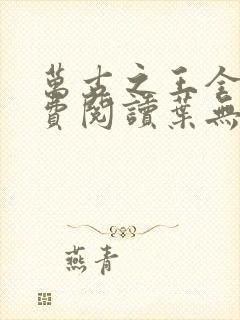 萬古之王全
費閱讀葉無
燕青